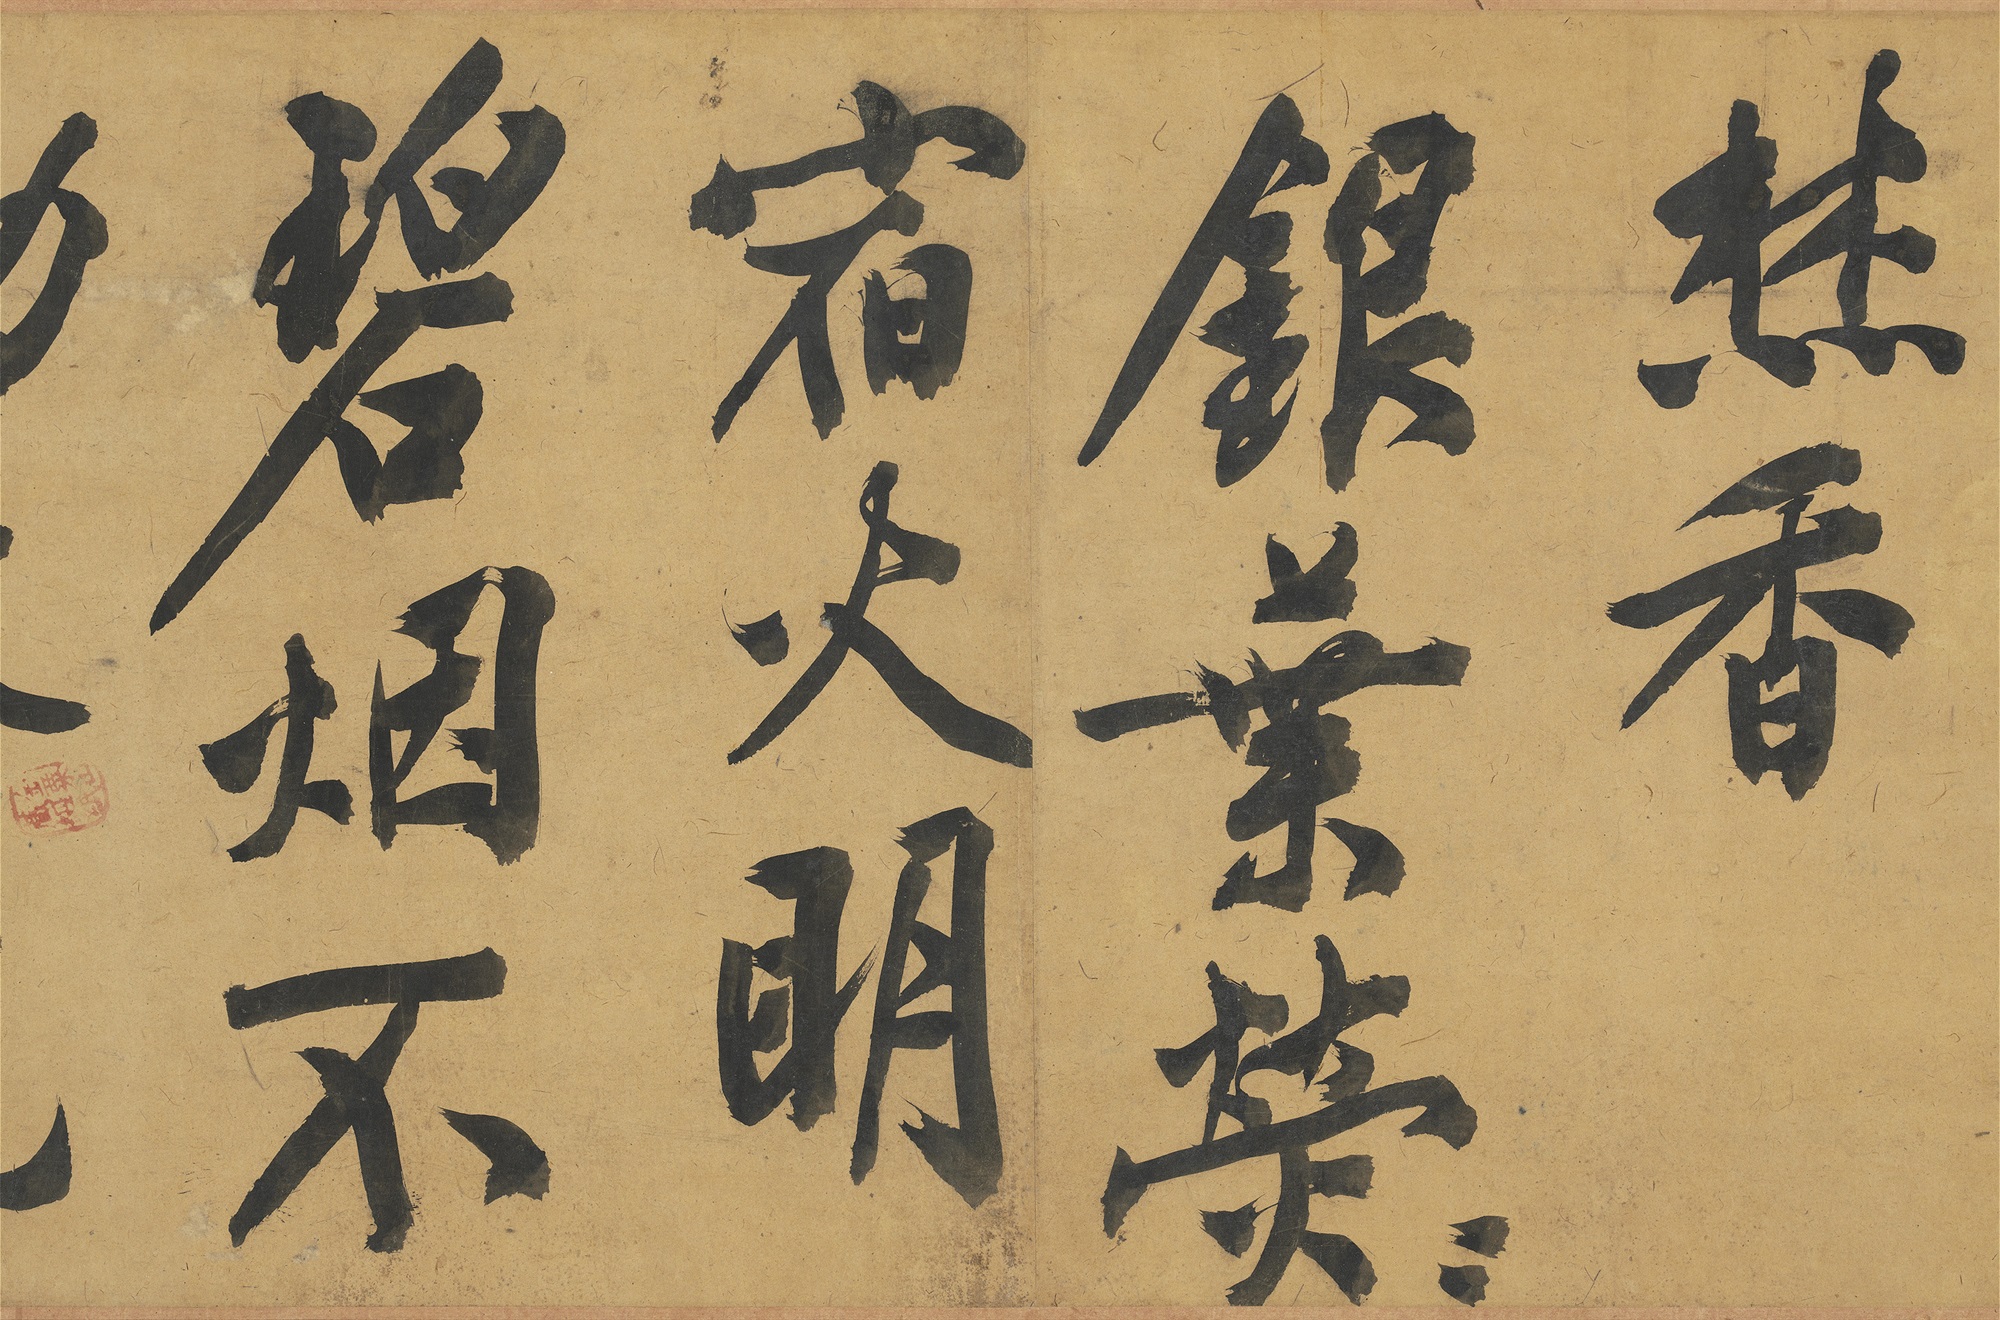 焚香
銀葉熒〻
宿火明
碧烟不